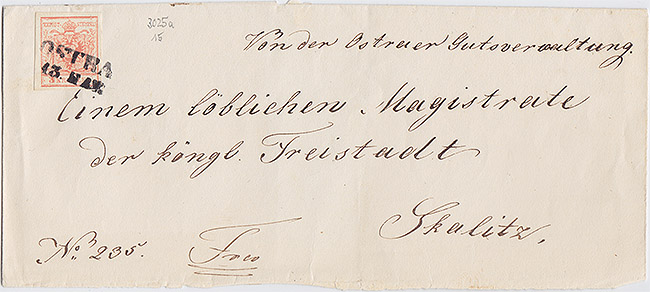 3025a
15
OSTRA
13. MAI
Von der Ostraer Gutsverwaltung.
Einem löblichen Magistrate
der köngl. Freistadt
Skalitz.
No. 235.
Fco